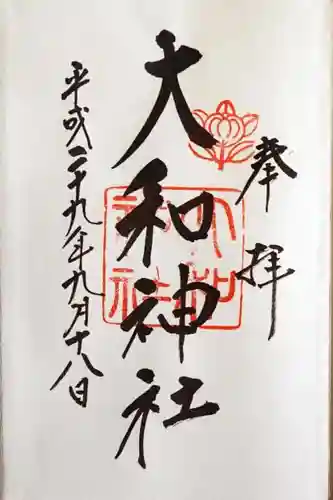 奉拝
大和神社
大和神社
平成二十九年九月十八日